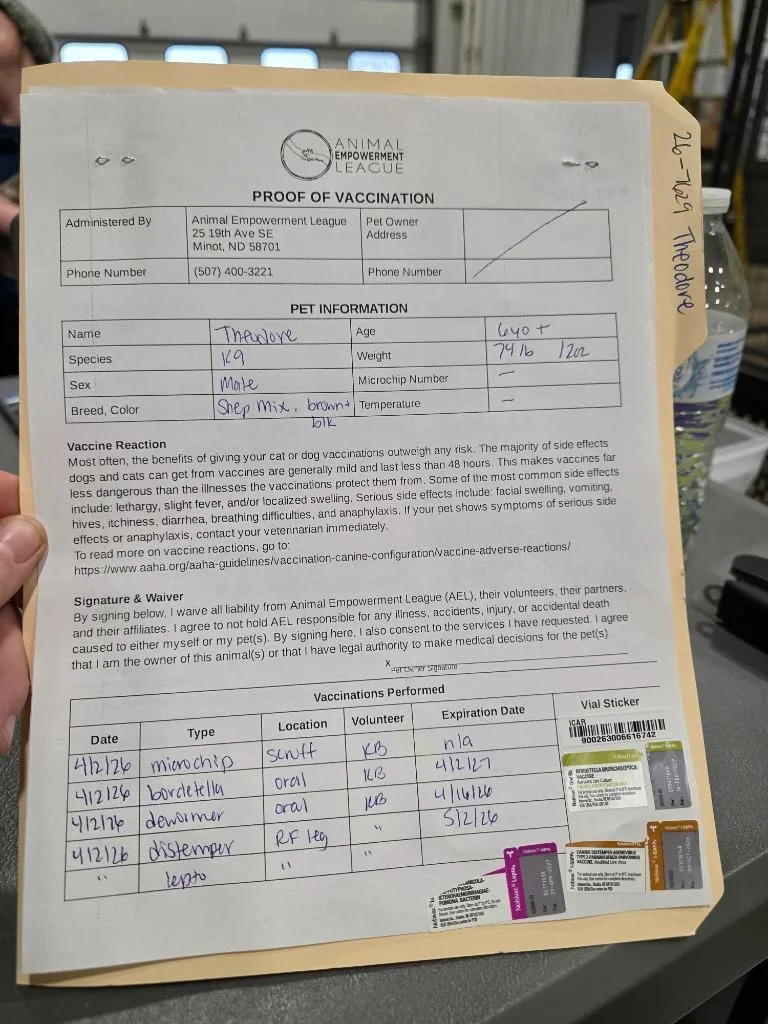 26-7629 Theodore
ANIMAL
EMPOWERMENT
LEAGUE
PROOF OF VACCINATION
Administered By
Animal Empowerment League
25 19th Ave SE
Minot, ND 58701
Pet Owner
Address
Phone Number
(507) 400-3221
Phone Number
PET INFORMATION
Name Theodore Age 6yo +
Species K9 Weight 74 lb 12oz
Sex Male Microchip Number —
Breed, Color Shep Mix, brown + Temperature —
blk
Vaccine Reaction
Most often, the benefits of giving your cat or dog vaccinations outweigh any risk. The majority of side effects
dogs and cats can get from vaccines are generally mild and last less than 48 hours. This makes vaccines far
less dangerous than the illnesses the vaccinations protect them from. Some of the most common side effects
include: lethargy, slight fever, and/or localized swelling. Serious side effects include: facial swelling, vomiting,
hives, itchiness, diarrhea, breathing difficulties, and anaphylaxis. If your pet shows symptoms of serious side
effects or anaphylaxis, contact your veterinarian immediately.
To read more on vaccine reactions, go to:
https://www.aaha.org/aaha-guidelines/vaccination-canine-configuration/vaccine-adverse-reactions/
Signature & Waiver
By signing below, I waive all liability from Animal Empowerment League (AEL), their volunteers, their partners,
and their affiliates. I agree to not hold AEL responsible for any illness, accidents, injury, or accidental death
caused to either myself or my pet(s). By signing here, I also consent to the services I have requested. I agree
that I am the owner of this animal(s) or that I have legal authority to make medical decisions for the pet(s).
X
Pet Owner Signature
Vaccinations Performed
Date Type Location Volunteer Expiration Date Vial Sticker
4/2/26 microchip scruff KB n/a
4/2/26 bordetella oral KB 4/2/27
4/2/26 dewormer oral KB 4/16/26
4/2/26 distemper RF leg " 5/2/26
" lepto " "
ICAR
900263006616742
BORDETELLA BRONCHISEPTICA
VACCINE
CANINE DISTEMPER-ADENOVIRUS
TYPE 2-PARAINFLUENZA-PARVOVIRUS
VACCINE, Modified Live Virus
ICTEROHAEMORRHAGIAE-
POMONA BACTERIN
Nobivac Lepto